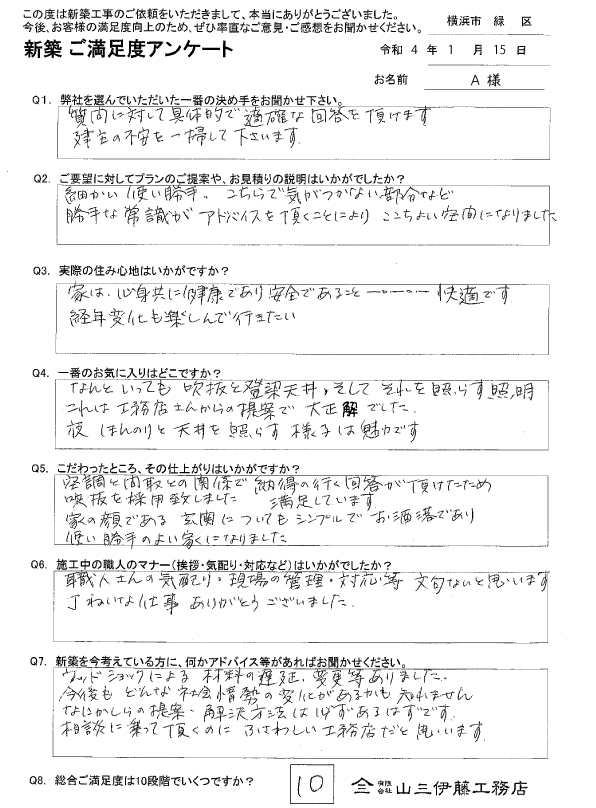 この度は新築工事のご依頼をいただきまして、本当にありがとうございました。
今後、お客様の満足度向上のため、ぜひ率直なご意見・ご感想をお聞かせください。
横浜市 緑 区
新築 ご満足度アンケート
令和 4 年 1 月 15 日
お名前 A 様
Q1. 弊社を選んでいただいた一番の決め手をお聞かせ下さい。
質問に対して具体的で適確な回答を頂けます
建主の不安を一掃して下さいます
Q2. ご要望に対してプランのご提案や、お見積りの説明はいかがでしたか?
細かい使い勝手。こちらで気がつかない部分など
勝手な常識がアドバイスを頂くことにより ここちよい空間になりました
Q3. 実際の住み心地はいかがですか?
家は、心身共に健康であり安全であること――――快適です
経年変化も楽しんで行きたい
Q4. 一番のお気に入りはどこですか?
なんといっても 吹抜と登梁天井。そして それを照らす照明
これは工務店さんからの提案で 大正解でした。
夜 ほんのりと天井を照らす様子は魅力です
Q5. こだわったところ、その仕上がりはいかがですか?
空調と間取との関係で納得の行く回答が頂けたため
吹抜を採用致しました 満足しています。
家の顔である玄関についてもシンプルで お洒落であり
使い勝手のよい家になりました
Q6. 施工中の職人のマナー(挨拶・気配り・対応など)はいかがでしたか?
職人さんの気配り・現場の管理・対応等 文句ないと思います
丁ねいな仕事 ありがとうございました。
Q7. 新築を今考えている方に、何かアドバイス等があればお聞かせください。
ウッドショックによる 材料の遅延、変更等ありました。
今後も どんな社会情勢の変化があるかも知れません
なにかしらの提案・解決方法は必ずあるはずです。
相談に乗って頂くのに ふさわしい工務店だと思います。
Q8. 総合ご満足度は10段階でいくつですか?
10
有限会社 山三伊藤工務店